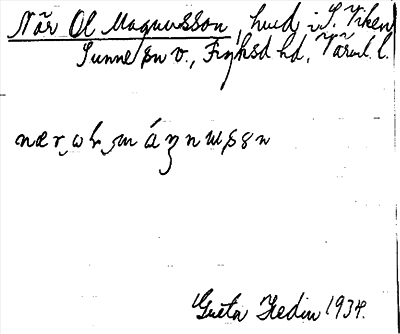 När Ol Magnusson, hund i S. Viken
Sunne sn v., Fryksd hd, Värml. l.
Greta Hedin 1934.